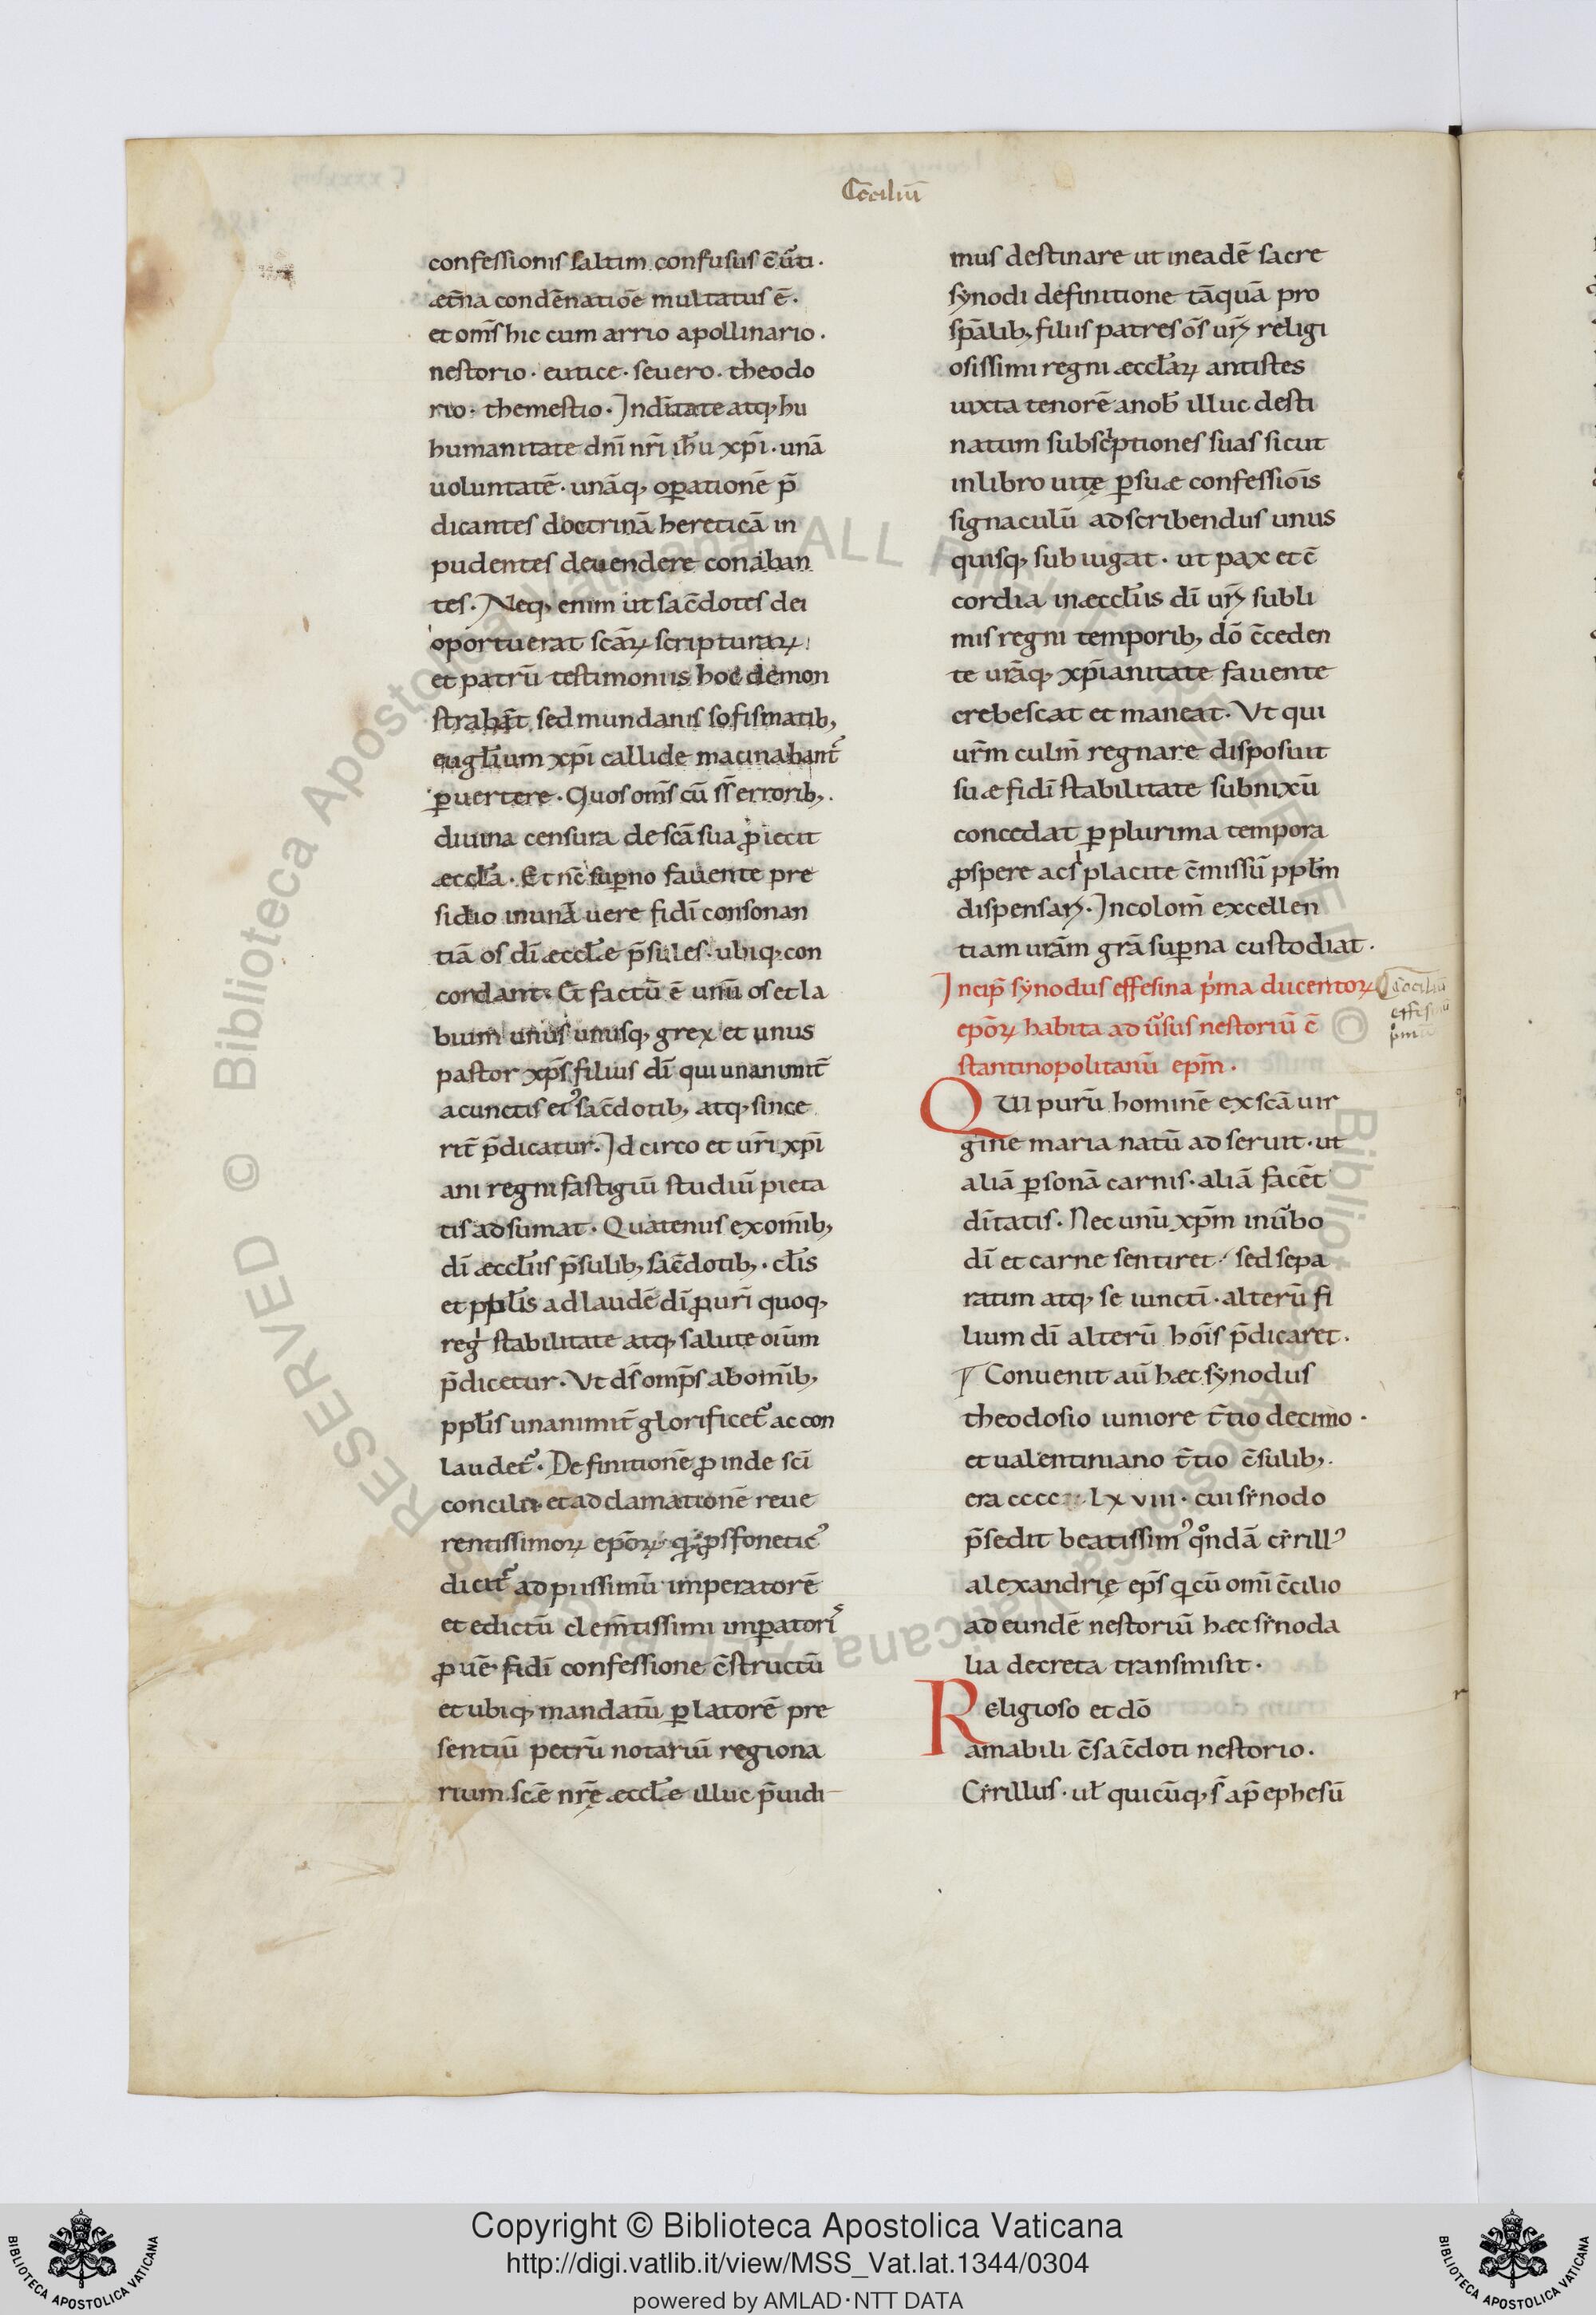 Cōciliū
confessionis saltim confusus c̄ ũti·
æt̄na condēnatiōe multatus ē·
et om̄s hic cum arrio apollinario·
nestorio· eutice· seuero· theodo
rio· themestio· Jndīitate atq; hu
humanitate dnī nr̄i ih̄u xp̄i· unā
uoluntatē· unāq; oꝑationē p̄
dicantes doctrinā hereticā in
pudentes deuendere conaban
tes· Neq; enim ut sac̄dotes dei
oportuerat scāꝝ scripturaꝝ·
et patrū testimoniis hoc demon
strabāt sed mundanis sofismatib;
euglīum xp̄i callide macinabant᷑
ꝑuertere· Quos om̄s cū ss̄ errorib;·
diuina censura de scā sua ꝓiecit
æccl̄a· Et nc̄ suꝑno fauente pre
sidio in unā uere fidī consonan
tiā os dī æccl̄e p̄sules· ubiq; con
cordant· Et factū ē unū os et la
buim unus unusq; grex et unus
pastor xp̄s filius dī qui unanimit̄
a cunctis ei᷒ sac̄dotib; atq; since
rit̄ p̄dicatur· Jdcirco et ur̄i xp̄i
ani regni fastigiū studiū pieta
tis adsumat· Quatenus ex omīb;
dī æccl̄iis p̄sulib; sac̄dotib;· cl̄is
et ppl̄is ad laudē dī ꝓ uri quoq;
reg̍ stabilitate atq; salute oiūm
p̄dicetur· Vt ds̄ omp̄s ab omīb;
ppl̄is unanimit̄ glorificet᷑ ac con
laudet᷑· Definitionē ꝓinde scī
concilii et adclamationē reue
rentissimoꝝ epōꝝ psfonetic᷒
dicit᷑ ad piissimū imperatorē
et edictū clem̄tissimi imꝑatoris
ꝓ uē fidī confessione c̄structū
et ubiq; mandatū ꝑ latorē pre
sentiū petrū notariū regiona
rium scē nrę̄ æccl̄e illuc p̄uidi
mus destinare ut in eadē sacre
synodi definitione tāquā pro
spālib; filiis patres ōs ur̄ religi
osissimi regni æccl̄aꝝ antistes
iuxta tenorē a nob̄ illuc desti
natum subsc̍ptiones suas sicut
in libro uitę ꝑ suæ confessiōis
signaculū adscribendus unus
quisq; subiugat· ut pax et c̄
cordia in æccl̄iis dī ur̄ subli
mis regni temporib; dō c̄ceden
te urāq; xp̄ianitate fauente
crebescat et maneat· Vt qui
ur̄m culm̄ regnare disposuit
suæ fidī stabilitate subnixū
concedat ꝑ plurima tempora
ꝓspere ac s̍ placite c̄missū ppl̄m
dispensaꝝ· Jncolom̄ excellen
tiam urām grā suꝑna custodiat·
Jncip̄ synodus effesina p̍ma ducentoꝝ
epōꝝ habita adũsus nestoriū c̄
stantinopolitanū epm̄·
Cōciliū
effesinū
p̍mū
QUI purū hominē ex scā uir
gine maria natū adseruit· ut
aliā ꝑsonā carnis· aliā facēt
dītatis· Nec unū xp̄m in ũbo
dī et carne sentiret· sed sepa
ratim atq; seiunctī· alterū fi
lium dī alterū hōis p̄dicaret·
Conuenit aū hæc synodus
theodosio iuniore t̄tio decimo·
et ualentiniano t̄tio c̄sulib;·
era cccc lxviii· cui sẏnodo
p̄sedit beatissim᷒ qͦndā cẏrill᷒
alexandrię ep̄s q̍ cū omī c̄cilio
ad eundē nestoriū hæc sẏnoda
lia decreta transmisit·
Religioso et dō
amabili c̄sac̄doti nestorio·
Cẏrillus· ul̄ quicūq; s̄ ap̄ ephesū
Copyright © Biblioteca Apostolica Vaticana
http://digi.vatlib.it/view/MSS_Vat.lat.1344/0304
powered by AMLAD·NTT DATA
BIBLIOTECA APOSTOLICA VATICANA
BIBLIOTECA APOSTOLICA VATICANA